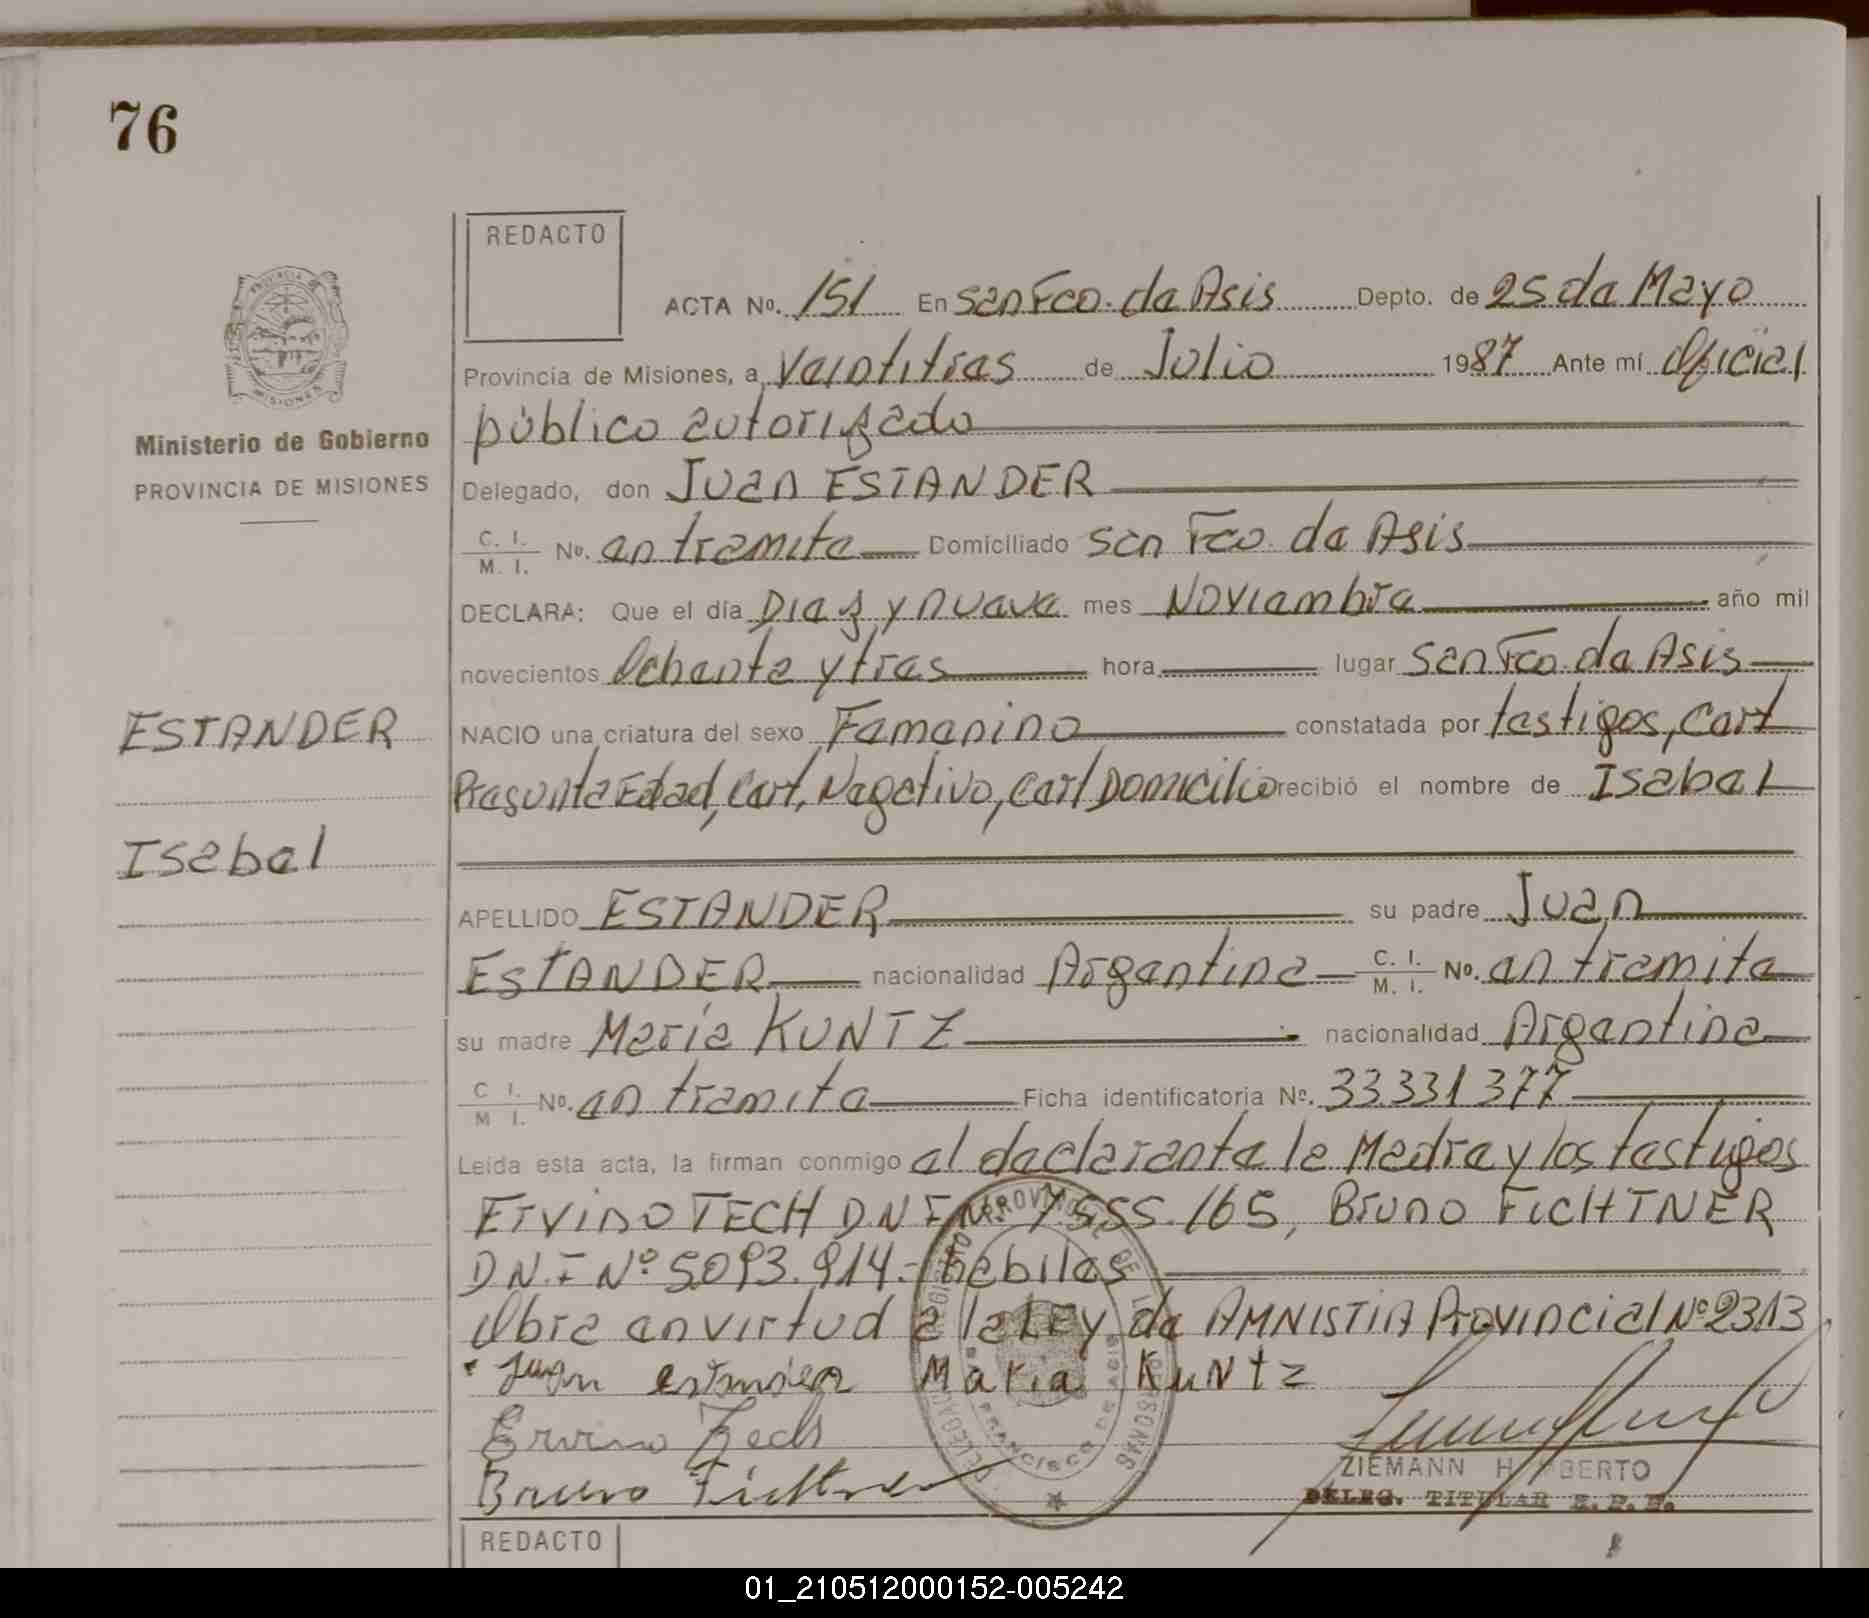 76
REDACTO
ACTA No. 151 En San Fco. de Asis Depto. de 25 de Mayo
Provincia de Misiones, a Veintitres de Julio 1987 Ante mí Oficial
público autorizado
Ministerio de Gobierno
PROVINCIA DE MISIONES
Delegado, don Juan ESTANDER
C. I. M. I. No. en tramite Domiciliado San Fco. de Asis
DECLARA: Que el día Diez y nueve mes Noviembre año mil
novecientos Ochenta y tres hora lugar San Fco. de Asis
ESTANDER
NACIO una criatura del sexo Femenino constatada por testigos, Cert
Presunta Edad, Cert, Negativo, Cert Domicilio recibió el nombre de Isabel
Isabel
APELLIDO ESTANDER su padre Juan
ESTANDER nacionalidad Argentina C. I. M. I. No. en tramite
su madre María KUNTZ nacionalidad Argentina
C I. M I. No. en tramite Ficha identificatoria No. 33.331377
Leída esta acta, la firman conmigo el declarante la Madre y los testigos
Ervino TECH D.N.I Nº 7.555.165, Bruno FICHTNER
D.N.I Nº 5.093.914.- habiles
Obra en virtud a la LEY de AMNISTIA Provincial Nº 2313
Juan estander Maria KuNtz
Ervino Tech
Bruno Fichtner
ZIEMANN H BERTO
DELEG. TITULAR R. P. P.
PROVINCIA DE
MISIONES
FRANCISCO DE ASIS
REDACTO
01_210512000152-005242